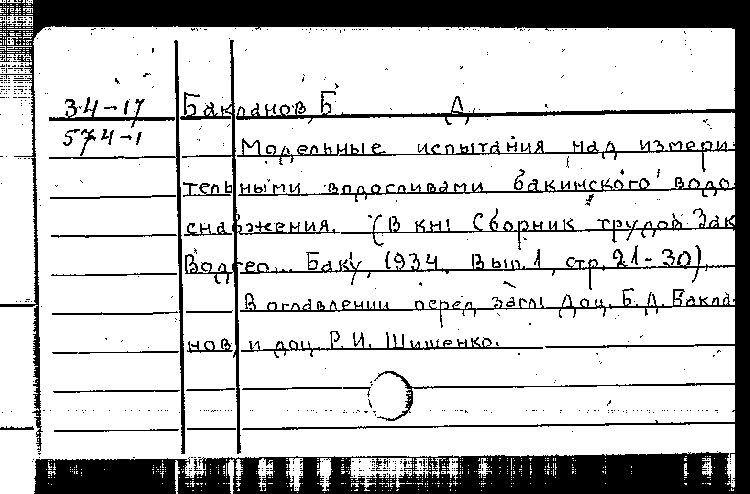 34-17 Бакланов, Б. Д.
574-1 Модельные испытания над измери-
тельными водосливами бакинского водо-
снабжения. (В кн: Сборник трудов Зак
Водгео... Баку, 1934, Вып. 1, стр. 21-30).
В оглавлении перед загл: Доц. Б. Д. Бакла-
нов, и доц. Р. И. Шищенко.